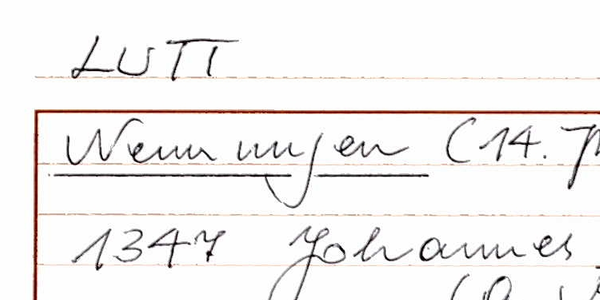 LUTT
Nennungen (14. J
1347 Johannes